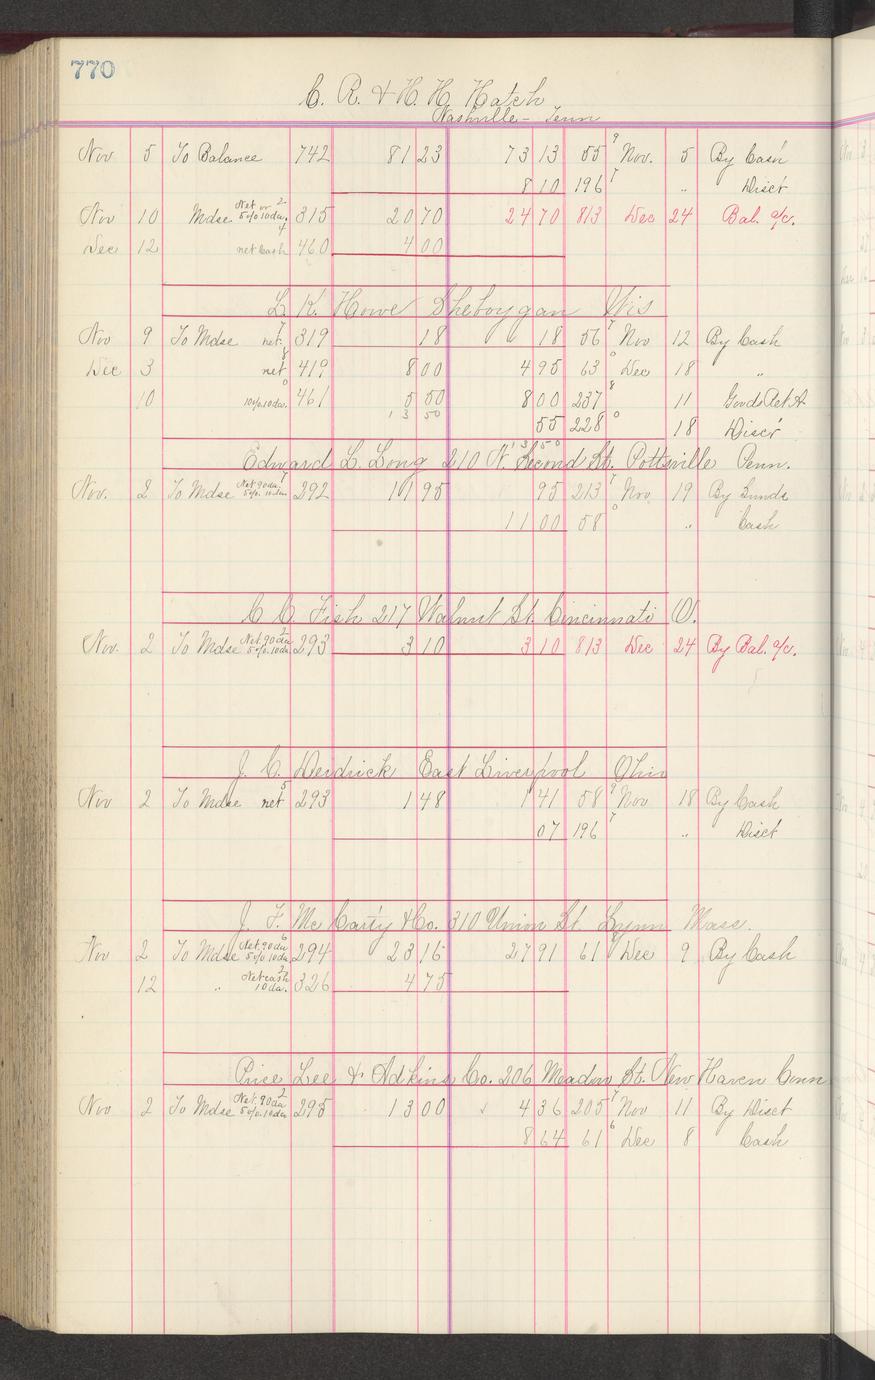 770
C. R. & H. H. Hatch
Nashville - Tenn
Nov 5 To Balance 742 81 23 73 13 55 9 Nov. 5 By Cash
8 10 196 7 " Disc't
Nov 10 Mdse Net or 2 5% 10 da. 315 20 70 24 70 813 Dec 24 Bal. a/c.
Dec 12 4 net Cash 460 4 00
L. K. Howe Sheboygan Wis
Nov 9 To Mdse net 7 319 18 18 56 7 Nov 12 By Cash
Dec 3 net 8 419 8 00 4 95 63 0 Dec 18 "
10 10% 10 da. 0 461 5 50 8 00 237 8 11 Goods Ret
13 50 55 228 0 18 Disc't
13 50
Edward L. Long 210 N. Second St. Pottsville Penn.
Nov. 2 To Mdse Net 90 da 7 5% 10 da 292 11 95 95 213 7 Nov 19 By Sunds
11 00 58 0 " Cash
C. C. Fish 217 Walnut St. Cincinnati O.
Nov. 2 To Mdse Net 90 da 2 5% 10 da 293 3 10 3 10 813 Dec 24 By Bal. a/c.
J. C. Deidrick East Liverpool Ohio
Nov 2 To Mdse net 5 293 1 48 1 41 58 9 Nov 18 By Cash
07 196 7 " Disct
J. F. Mc Carty & Co. 310 Union St. Lynn Mass.
Nov 2 To Mdse Net 90 da 6 5% 10 da 294 23 16 27 91 61 Dec 9 By Cash
12 " Net cash 2 10 da. 326 4 75
Price Lee & Adkins Co. 206 Meadow St. New Haven Conn
Nov 2 To Mdse Net 90 da 2 5% 10 da 295 13 00 4 36 205 7 Nov 11 By Disct
8 64 61 6 Dec 8 Cash